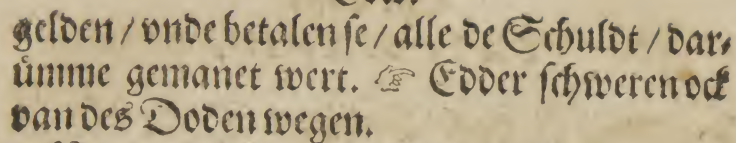 gelden / vnde betalen ſe / alle de Schuldt / dar⸗
ümme gemanet wert. ☞ Edder ſchweren ock
van des Doden wegen.